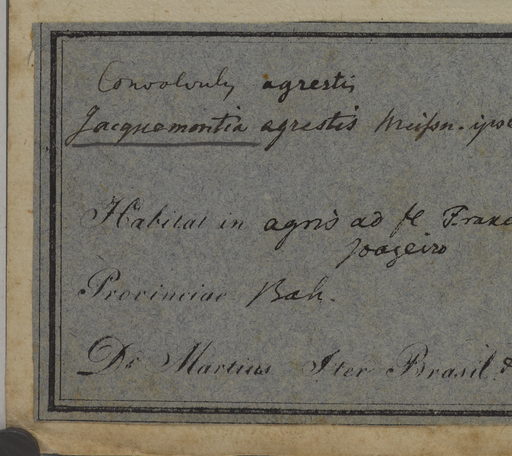 Convolvulus agrestis
Jacquemontia agrestis Meißn. ipse
Habitat in agris ad fl Franc
Joazeiro
Provinciae Bah.
Dr Martius Iter Brasil. &